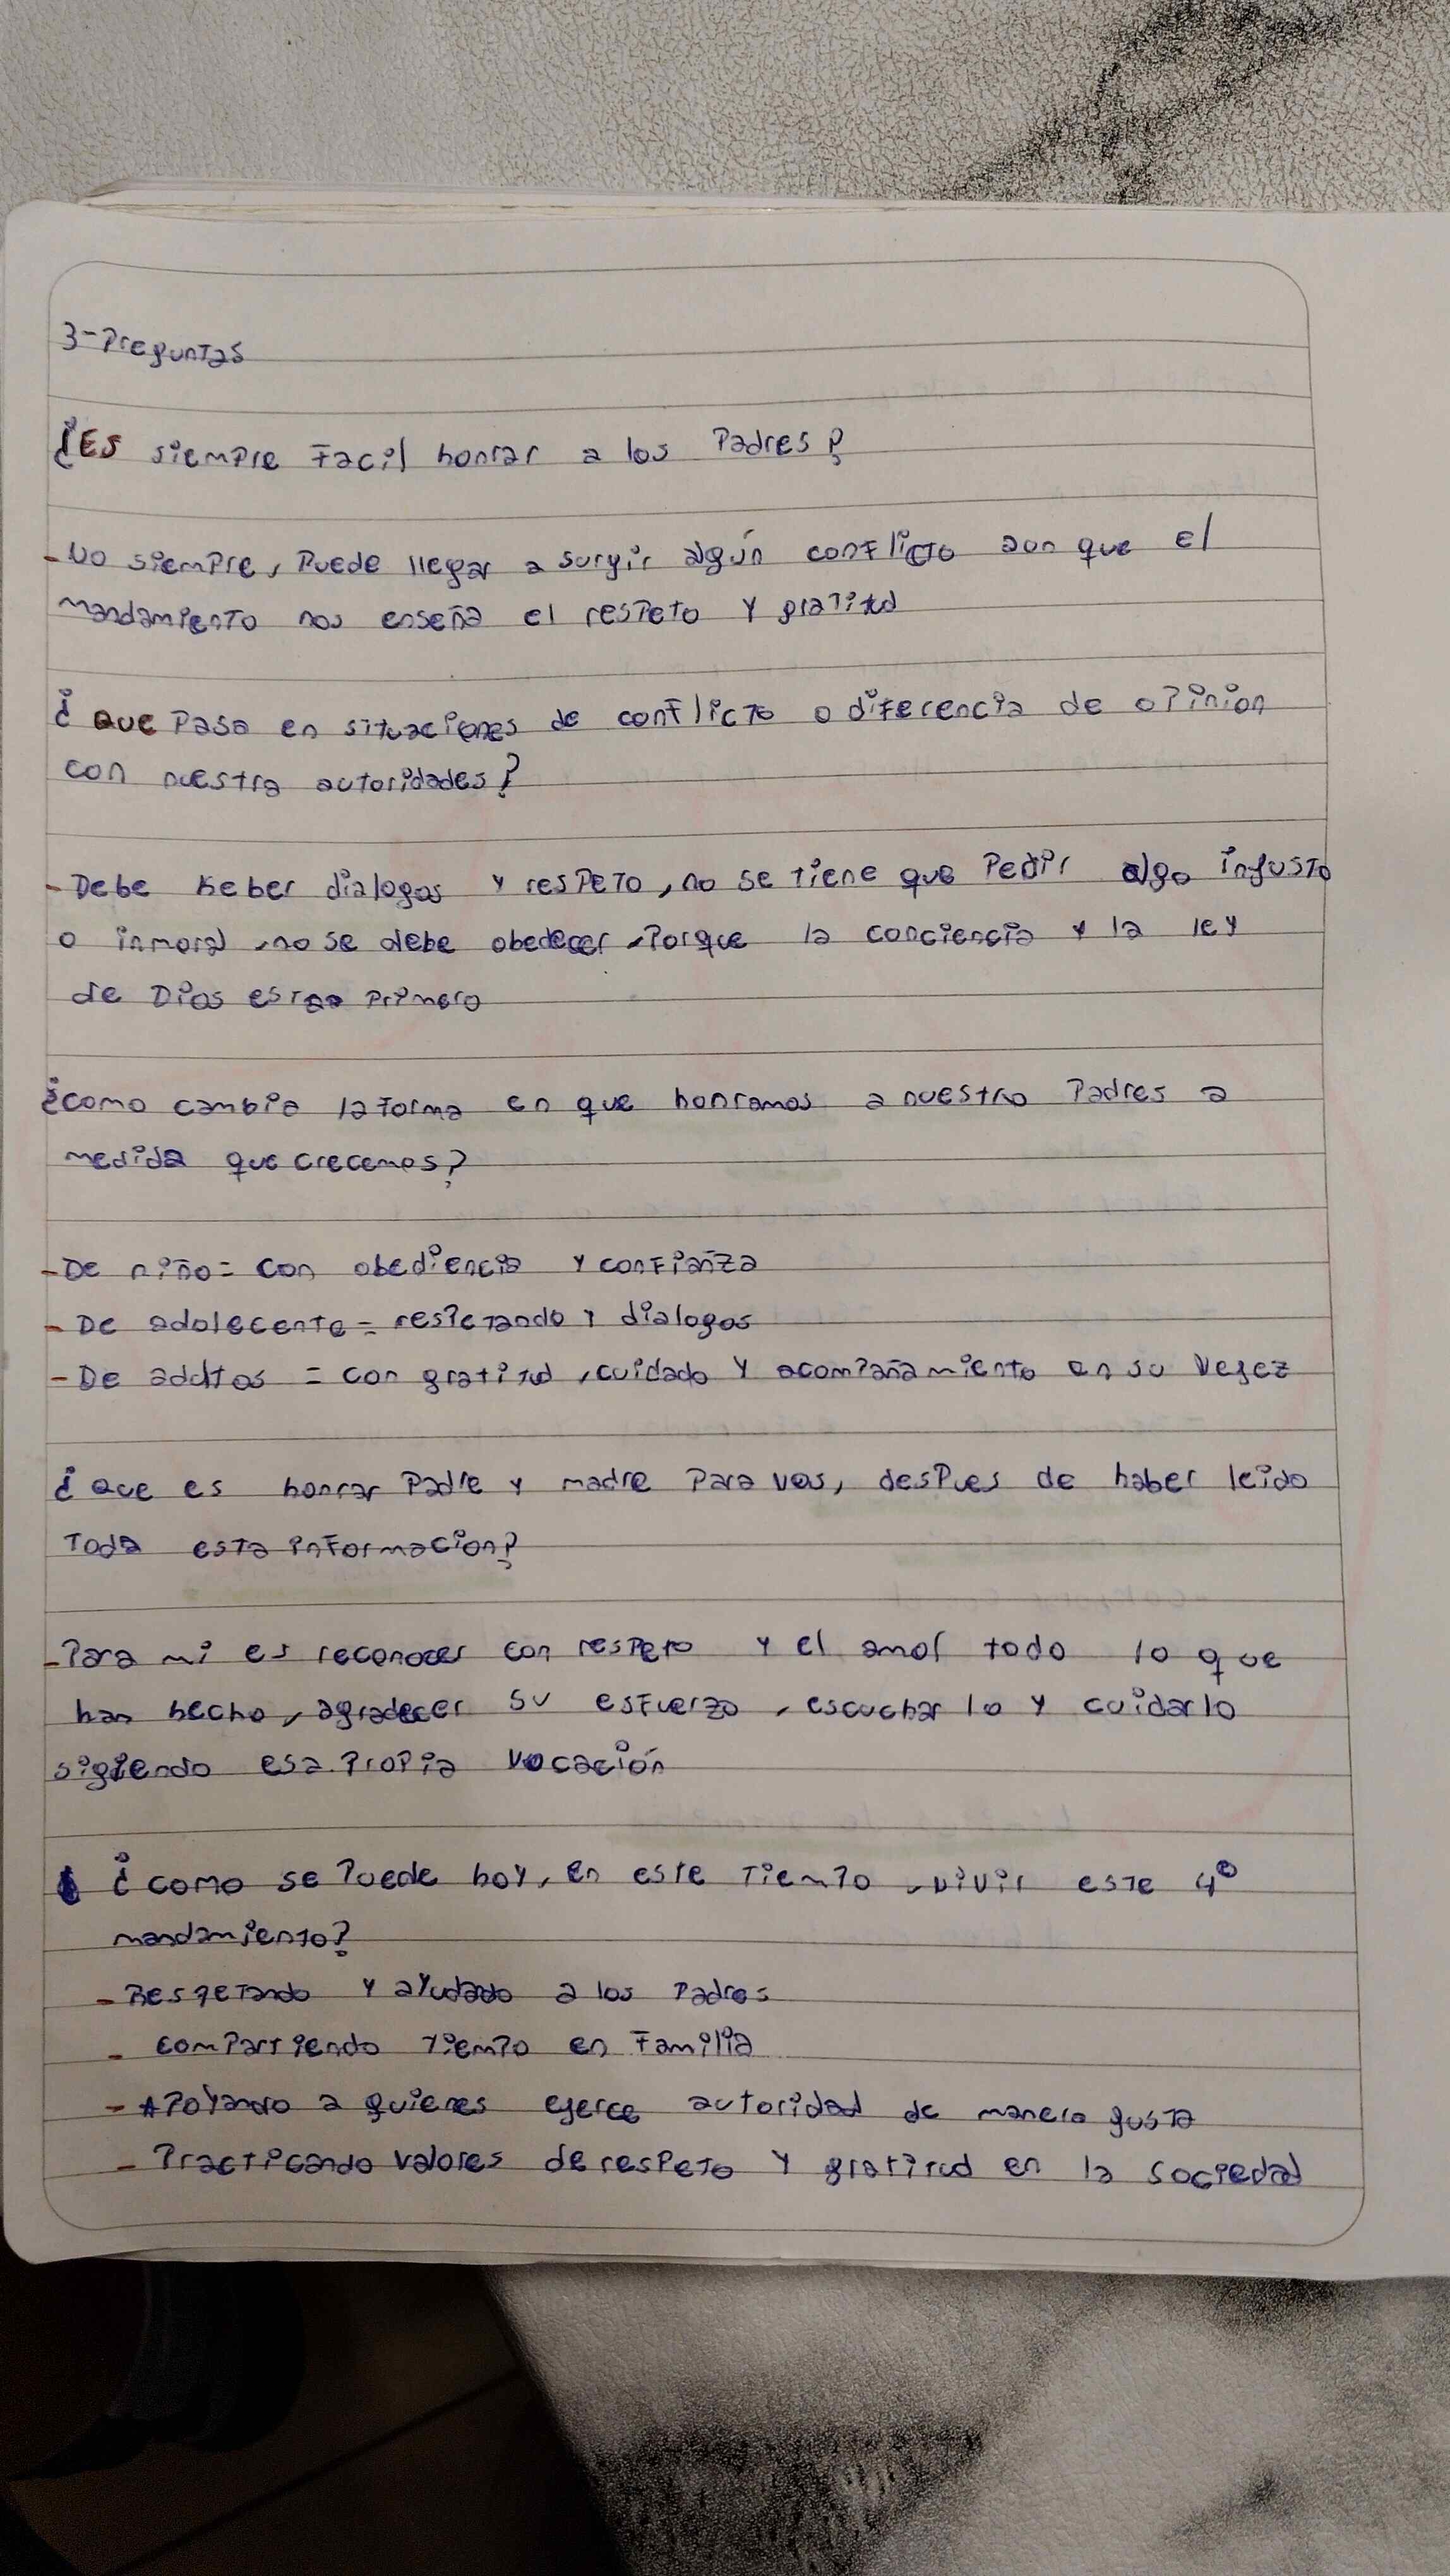 3-Preguntas
¿Es siempre Facil honrar a los Padres?
-No siempre, Puede llegar a surgir algún conflicto aun que el
mandamiento nos enseña el respeto y gratitud
¿Que Pasa en situaciones de conflicto o diferencia de opinion
con nuestra autoridades?
-Debe heber dialogos y respeto, no se tiene que Pedir algo injusto
o inmoral, no se debe obedecer, Porque la conciencia y la ley
de Dios estan Primero
¿como cambia la forma en que honramos a nuestro Padres a
medida que crecemos?
-De niño= con obediencia y confianza
-De adolecente= respetando y dialogos
-De adultos = con gratitud, cuidado y acompañamiento en su vejez
¿Que es honrar Padre y madre Para vos, despues de haber leido
Toda esta informacion?
-Para mi es reconocer con respeto y el amor todo lo que
han hecho, agradecer su esfuerzo, escuchar lo y cuidarlo
sigiendo esa Propia vocación
¿como se Puede hoy, en este Tiempo, vivir este 4°
mandamiento?
-Respetando y ayudado a los Padres
- compartiendo tiempo en Familia
-APoyando a quienes ejerce autoridad de manera gusta
-Practicando valores de respeto y gratitud en la sociedad